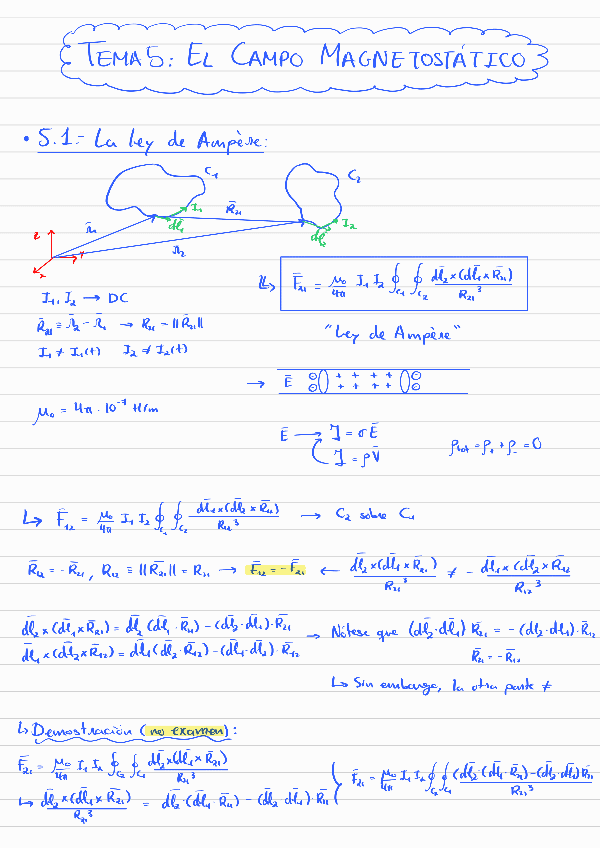 TEMA 5: EL CAMPO MAGNETOSTÁTICO
• 5.1.- La Ley de Ampère:
C₁ C₂
R̄₂₁ I₁ I₂
r̄₁ dl̄₁ dl̄₂
z r̄₂
y
x
I₁, I₂ → DC
↳ F̄₂₁ = μ₀/4π I₁ I₂ ∮c₁ ∮c₂ dl̄₂×(dl̄₁×R̄₂₁)/R₂₁³
R̄₂₁ ≡ r̄₂ - r̄₁ → R₂₁ = ||R̄₂₁||
"Ley de Ampère"
I₁ ≠ I₁(t) I₂ ≠ I₂(t)
→ Ē + + + + + + + +
μ₀ = 4π · 10⁻⁷ H/m
Ē → J̄ = σĒ
J̄ = ρV̄
ρtot = ρ₊ + ρ₋ = 0
↳ F̄₁₂ = μ₀/4π I₁ I₂ ∮c₁ ∮c₂ dl̄₁×(dl̄₂×R̄₁₂)/R₁₂³ → C₂ sobre C₁
R̄₁₂ = -R̄₂₁, R₁₂ ≡ ||R̄₂₁|| = R₂₁ → F̄₁₂ = -F̄₂₁ ← dl̄₂×(dl̄₁×R̄₂₁)/R₂₁³ ≠ - dl̄₁×(dl̄₂×R̄₁₂)/R₁₂³
dl̄₂×(dl̄₁×R̄₂₁) = dl̄₁(dl̄₂·R̄₂₁) - (dl̄₂·dl̄₁)·R̄₂₁ → Nótese que (dl̄₂·dl̄₁) R̄₂₁ = -(dl̄₂·dl̄₁)·R̄₁₂
dl̄₁×(dl̄₂×R̄₁₂) = dl̄₂(dl̄₁·R̄₁₂) - (dl̄₁·dl̄₂)·R̄₁₂
R̄₂₁ = -R̄₁₂
↳ Sin embargo, la otra parte ≠
↳ Demostración (no examen):
F̄₂₁ = μ₀/4π I₁ I₂ ∮c₂ ∮c₁ dl̄₂×(dl̄₁×R̄₂₁)/R₂₁³
↳ dl̄₂×(dl̄₁×R̄₂₁)/R₂₁³ = dl̄₂·(dl̄₁·R̄₂₁) - (dl̄₂·dl̄₁)·R̄₂₁
F̄₂₁ = μ₀/4π I₁ I₂ ∮c₂ ∮c₁ (dl̄₂·(dl̄₁·R̄₂₁) - (dl̄₂·dl̄₁)R̄₂₁)/R₂₁³